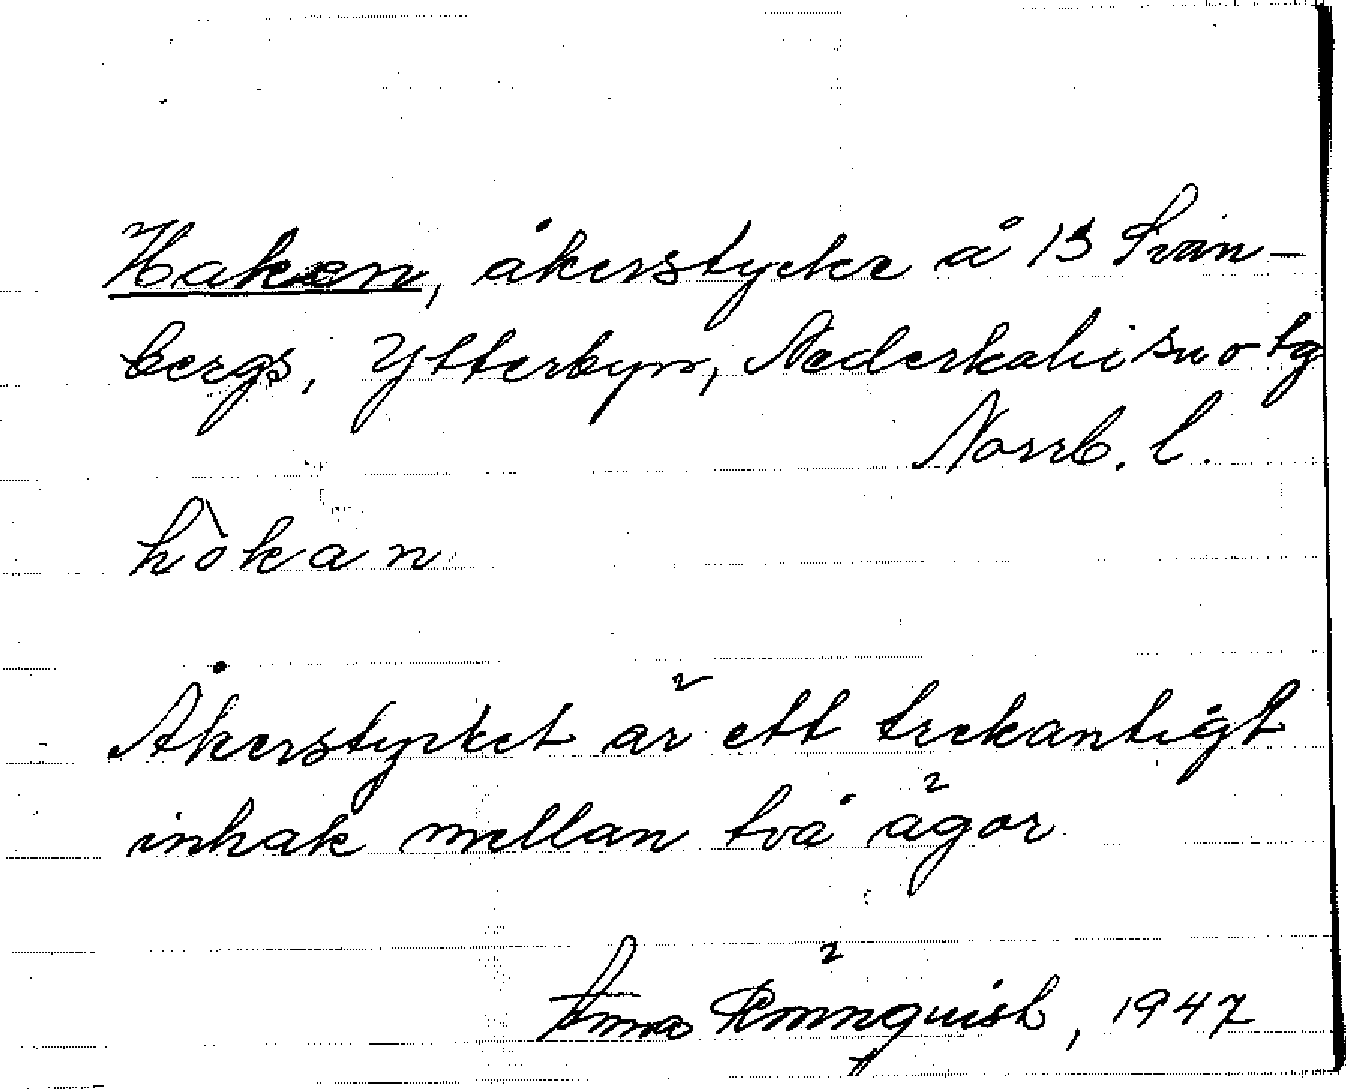 Haken, åkerstycke å 13 Svan-
bergs, Ytterbyn, Nederkalix sn o tg
Norrb. l.
hòkan
Åkerstycket är ett trekantigt
inhak mellan två ägor
Rönnquist, 1947